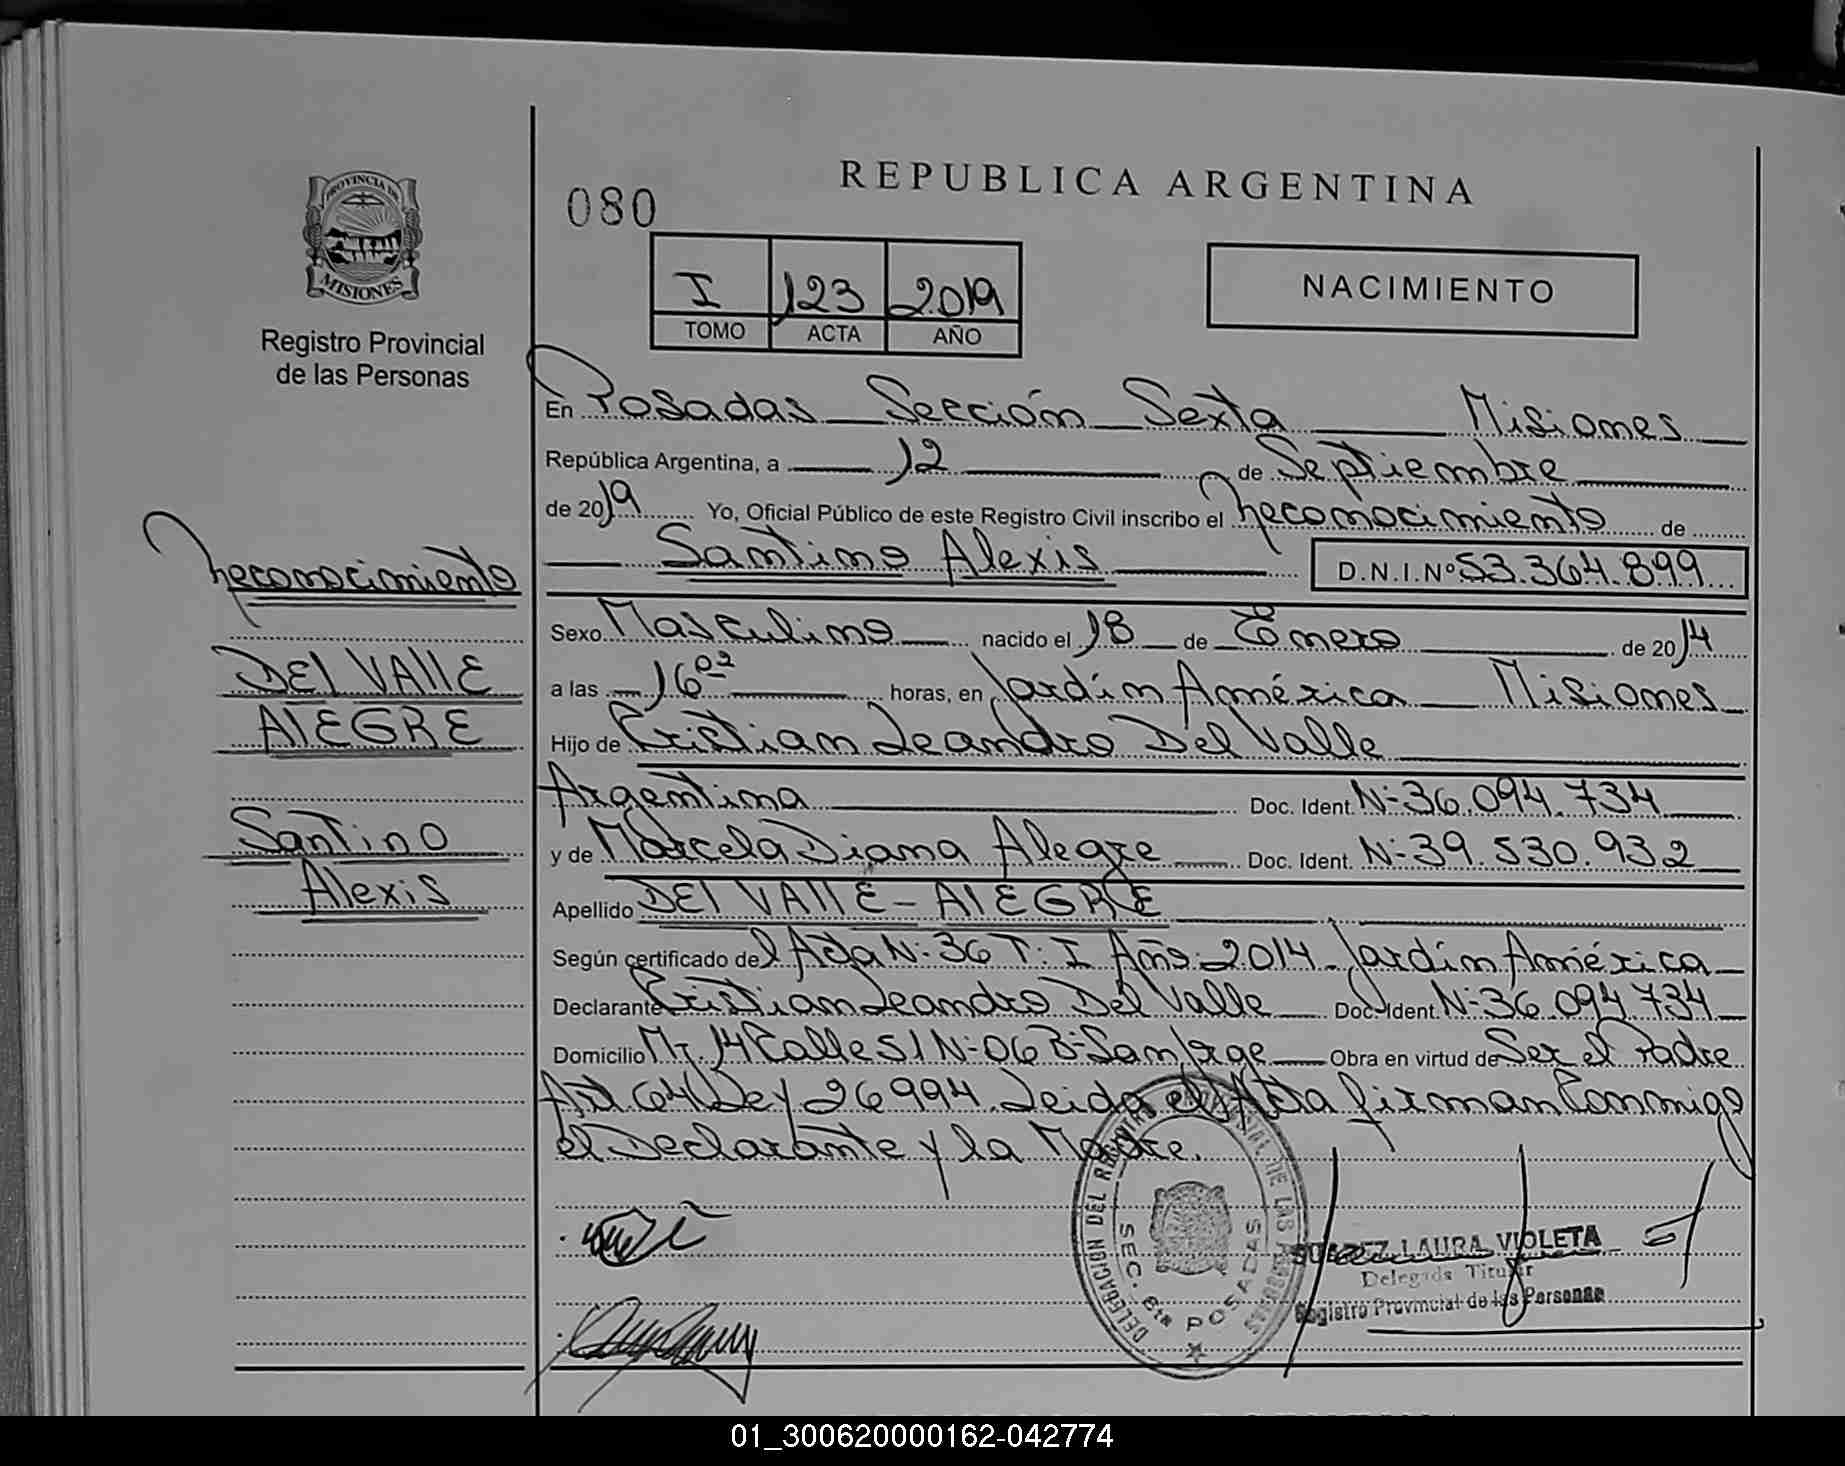 REPUBLICA ARGENTINA
080
PROVINCIA DE
MISIONES
Registro Provincial
de las Personas
I 123 2019
TOMO ACTA AÑO
NACIMIENTO
En Posadas Sección Sexta Misiones
República Argentina, a 12 de Septiembre
de 2019 Yo, Oficial Público de este Registro Civil inscribo el reconocimiento de
Santino Alexis D.N.I.Nº 53.364.899
Sexo Masculino nacido el 18 de Enero de 2014
a las 16 02 horas, en Jardín América Misiones
Hijo de Cristian Leandro Del Valle
Argentina Doc. Ident. Nº 36.094.734
y de Marcela Diana Alegre Doc. Ident. Nº 39.530.932
Apellido DEl VAllE - AlEGRE
Según certificado del Acta Nº 36 T: I Año: 2014 - Jardín América
Declarante Cristian Leandro Del Valle Doc. Ident. Nº 36.094.734
Domicilio Mz. 14 Calle S/N-06 Bº San Jorge Obra en virtud de Ser el Padre
Art 64 Ley 26994. Leida el Acta firman Conmigo
el Declarante y la Madre.
reconocimiento
DEl VAllE
AlEGRE
Santino
Alexis
DELEGACION DEL REGISTRO PROVINCIAL DE LAS PERSONAS
SEC. 6ta POSADAS
SUAREZ LAURA VIOLETA
Delegada Titular
Registro Provincial de las Personas
01_300620000162-042774